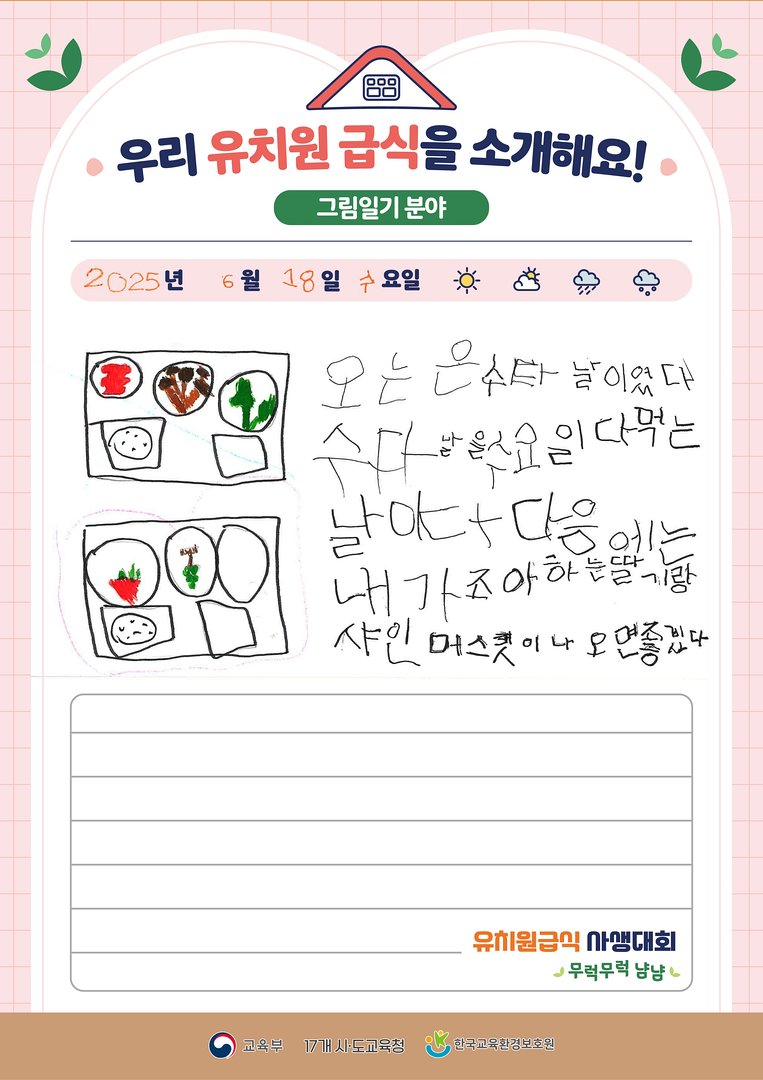 우리 유치원 급식을 소개해요!
그림일기 분야
2025년 6월 18일 수요일
오는 은수다 날이였다
수다날은수요일이다먹는
날이다 다음에는
내가조아하는딸기랑
샤인머스켓이나오면좋겠다
유치원급식 사생대회
무럭무럭 냠냠
교육부 17개 시·도교육청 한국교육환경보호원